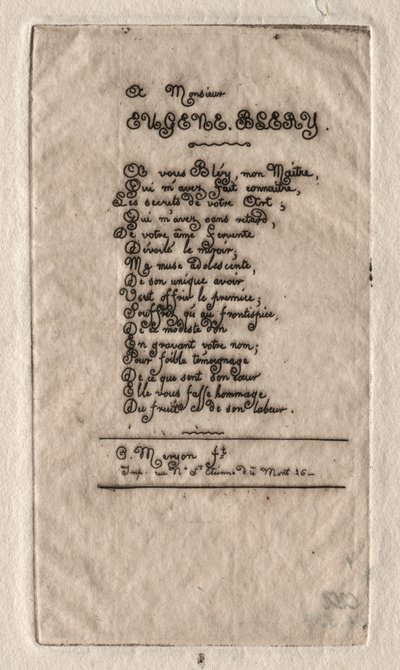 A Monsieur
EUGENE. BLERY.
A vous Bléry, mon Maître,
Qui m'avez fait connaître,
Les secrets de votre Art;
Qui m'avez sans retard,
De votre âme fervente
Dévoilé le miroir;
Ma muse adolescente,
De son unique avoir
Veut offrir le premice;
Souffrez qu'au frontispice,
De ce modeste don
En gravant votre nom;
Pour foible témoignage
De ce que sent son cœur
Elle vous fasse hommage
Du fruit de son labeur.
C. Meryon ft
Imp. rue Ne St Etienne du Mont 26